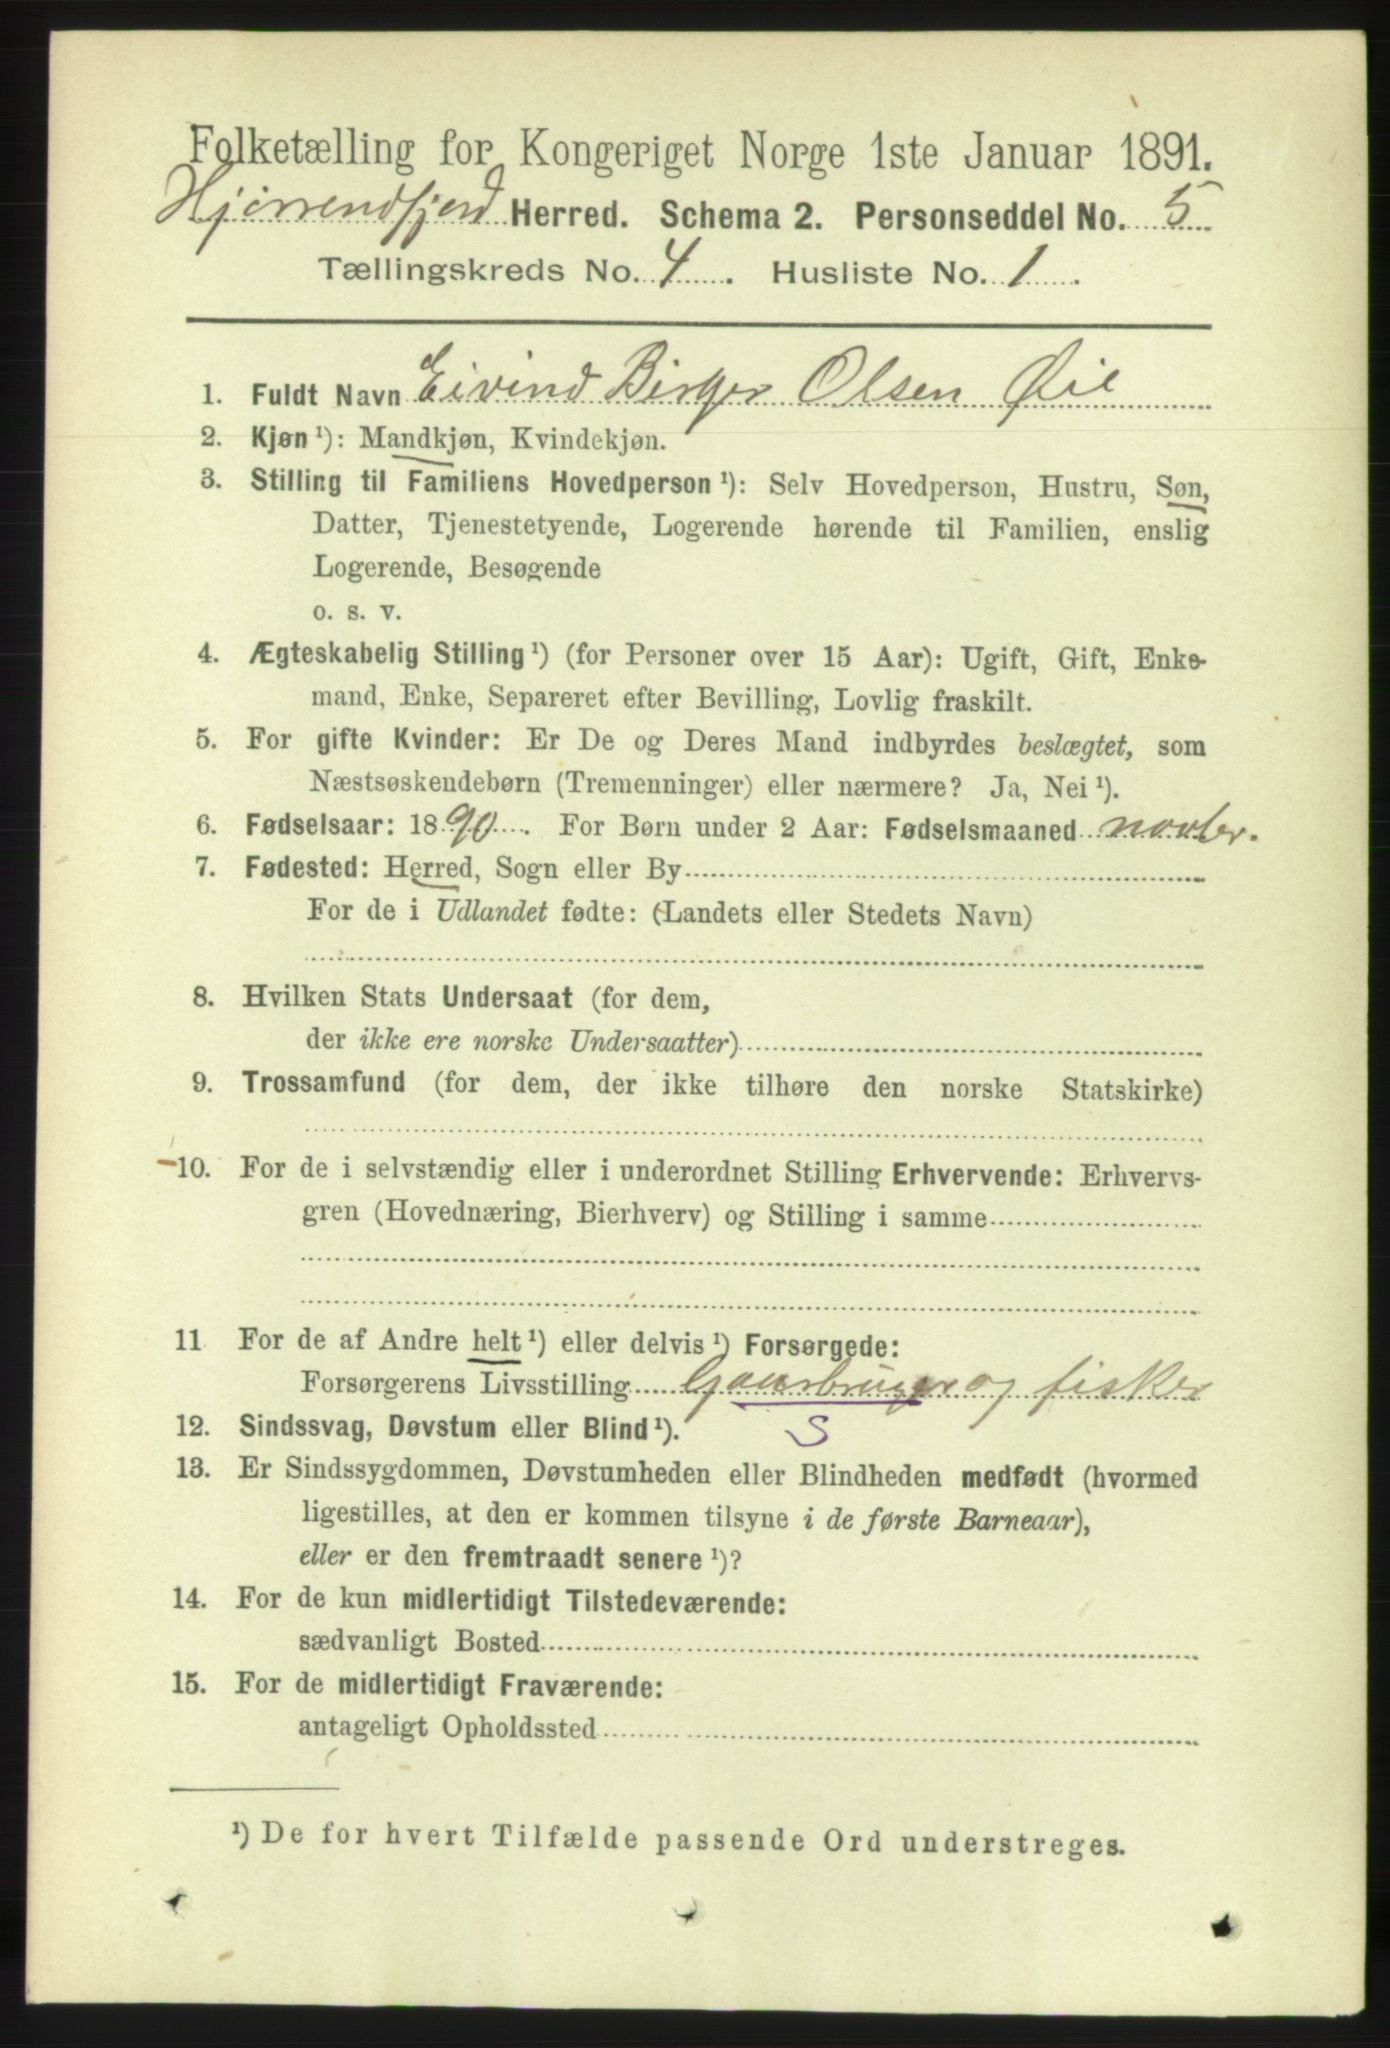 Folketælling for Kongeriget Norge 1ste Januar 1891.
Hjørrendfjord Herred. Schema 2. Personseddel No. 5
Tællingskreds No. 4. Husliste No. 1.
1. Fuldt Navn Eivind Birger Olsen Øie
2. Kjøn ¹): Mandkjøn, Kvindekjøn.
3. Stilling til Familiens Hovedperson ¹): Selv Hovedperson, Hustru, Søn,
Datter, Tjenestetyende, Logerende hørende til Familien, enslig
Logerende, Besøgende
o. s. v.
4. Ægteskabelig Stilling ¹) (for Personer over 15 Aar): Ugift, Gift, Enke-
mand, Enke, Separeret efter Bevilling, Lovlig fraskilt.
5. For gifte Kvinder: Er De og Deres Mand indbyrdes beslægtet, som
Næstsøskendebørn (Tremenninger) eller nærmere? Ja, Nei ¹).
6. Fødselsaar: 1890. For Børn under 2 Aar: Fødselsmaaned novber.
7. Fødested: Herred, Sogn eller By
For de i Udlandet fødte: (Landets eller Stedets Navn)
8. Hvilken Stats Undersaat (for dem,
der ikke ere norske Undersaatter)
9. Trossamfund (for dem, der ikke tilhøre den norske Statskirke)
10. For de i selvstændig eller i underordnet Stilling Erhvervende: Erhvervs-
gren (Hovednæring, Bierhverv) og Stilling i samme
11 For de af Andre helt ¹) eller delvis ¹) Forsørgede:
Forsørgerens Livsstilling Gaardbruger og fisker
12. Sindssvag, Døvstum eller Blind ¹). S
13. Er Sindssygdommen, Døvstumheden eller Blindheden medfødt (hvormed
ligestilles, at den er kommen tilsyne i de første Barneaar),
eller er den fremtraadt senere ¹)?
14. For de kun midlertidigt Tilstedeværende:
sædvanligt Bosted
15. For de midlertidigt Fraværende:
antageligt Opholdssted
¹) De for hvert Tilfælde passende Ord understreges.